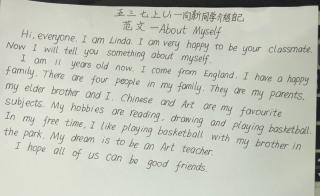 五三七上U1一向新同学介绍自己
范文 —About Myself
Hi, everyone. I am Linda. I am very happy to be your classmate.
Now I will tell you something about myself.
I am 11 years old now. I come from England. I have a happy
family. There are four people in my family. They are my parents,
my elder brother and I. Chinese and Art are my favourite
subjects. My hobbies are reading, drawing and playing basketball.
In my free time, I like playing basketball with my brother in
the park. My dream is to be an Art teacher.
I hope all of us can be good friends.